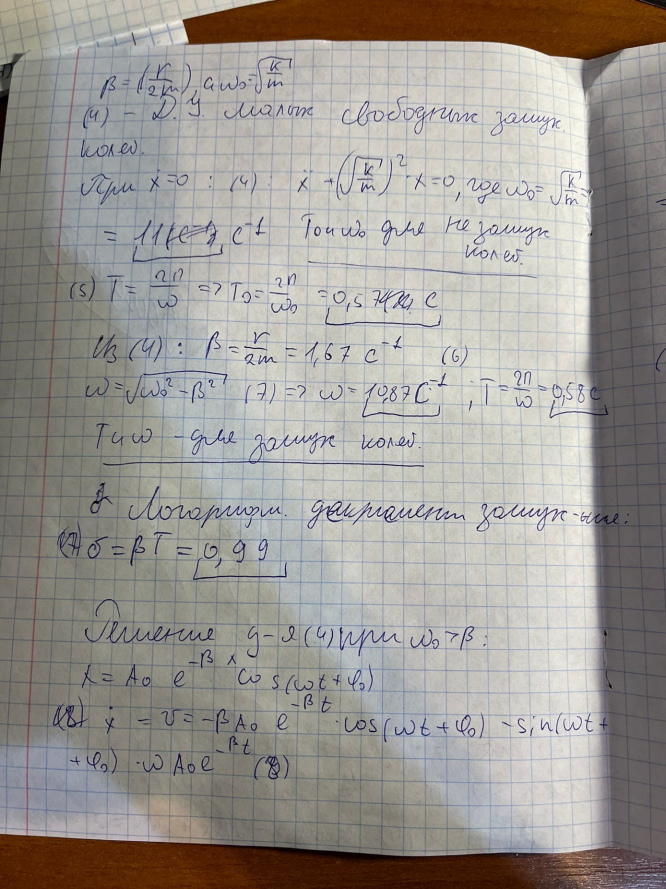 β = (r/2m), а ω₀ = √(k/m)
(4) – Д.У. малых свободных затух.
колеб.
При ẋ=0 : (4): ẍ + (√(k/m))² · x = 0, где ω₀ = √(k/m) =
= 11 с⁻¹ T₀ и ω₀ для не затух
колеб.
(5) T = 2π/ω => T₀ = 2π/ω₀ = 0,57 с
Из (4) : β = r/2m = 1,67 с⁻¹ (6)
ω = √(ω₀² – β²) (7) => ω = 10,87 с⁻¹ ; T = 2π/ω = 0,58 с
T и ω – для затух колеб.
Логарифм. декремент затух-ния:
δ = βT = 0,99
Решение у-я (4) при ω₀ > β :
x = A₀ e^(-βx) cos(ωt + φ₀)
ẋ = v = -βA₀ e^(-βt) · cos(ωt + φ₀) – sin(ωt +
+ φ₀) · ωA₀e^(-βt) (8)